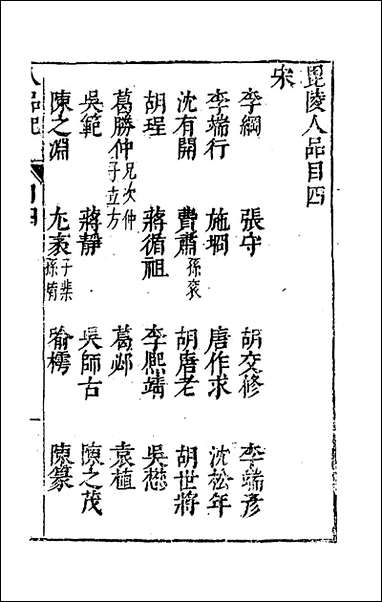 毘陵人品目四
宋
李綱 張守 胡交修 李端彥
李端行 施坰 唐作求 沈松年
沈有開 費肅孫袞 胡唐老 胡世將
胡珵 蔣循祖 李熙靖 吳懋
葛勝仲兄次仲子立方 葛邲 袁植
吳範 蔣靜 吳師古 陳之茂
陳之淵 尤袤子棐孫焴 喻樗 陳篆
人品記 目四 一